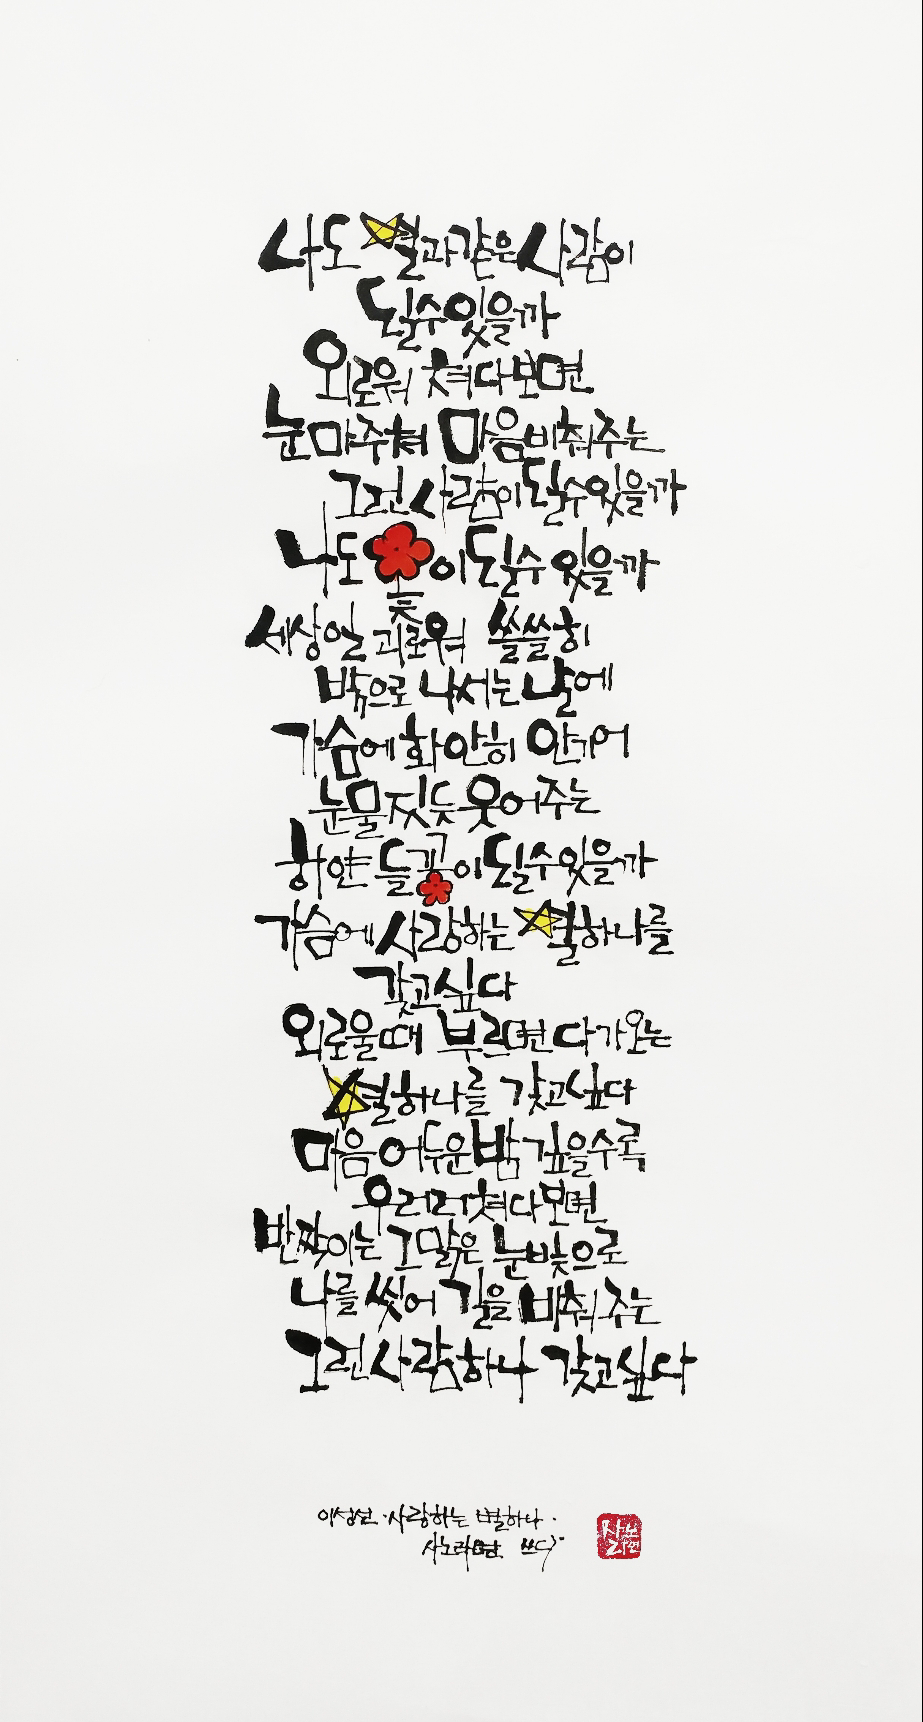 나도 별과같은사람이
될수있을까
외로워 쳐다보면
눈마주쳐 마음비춰주는
그런사람이될수있을까
나도꽃이될수 있을까
세상일 괴로워 쓸쓸히
밖으로 나서는날에
가슴에화안히 안기어
눈물짓듯웃어주는
하얀 들꽃이될수있을까
가슴에사랑하는 별하나를
갖고싶다
외로울때 부르면다가오는
별하나를 갖고싶다
마음어두운밤 깊을수록
우러러쳐다보면
반짝이는 그맑은 눈빛으로
나를 씻어 길을 비춰주는
그런사람하나 갖고싶다
이성선·사랑하는 별하나·
쓰다